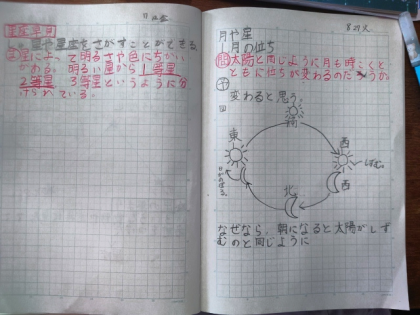 星座早見
星や星座をさがすことができる。
②星によって明るさや色にちがい
がある。明るい星から1等星
2等星 3等星というように分
けられている。
8/29 火
月や星
1 月の位ち
問 太陽と同じように月も時こくと
ともに位ちが変わるのだろうか。
予
変わると思う。
図
南
東
西
しずむ。
西
北
なぜなら、朝になると太陽がしず
むのと同じように